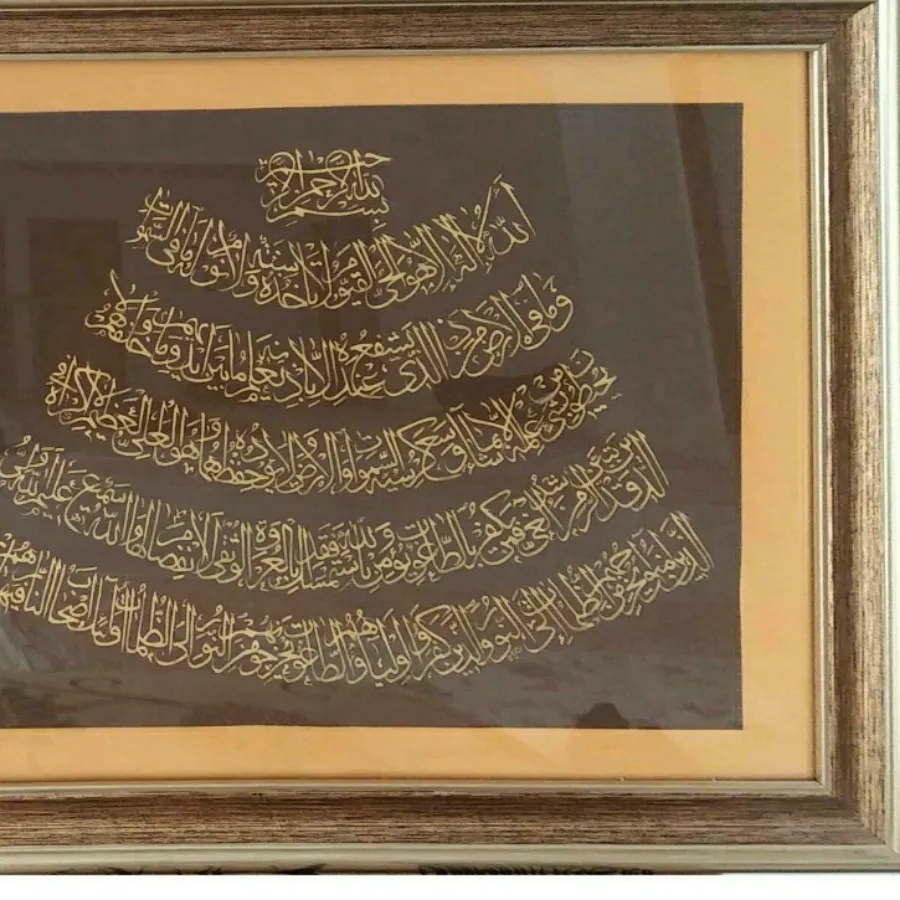 بسم الله الرحمن الرحيم
الله لا إله إلا هو الحي القيوم لا تأخذه سنة ولا نوم له ما في السموات
وما في الارض من ذا الذي يشفع عنده إلا بإذنه يعلم ما بين أيديهم وما خلفهم ولا
يحيطون بشئ من علمه إلا بما شاء وسع كرسيه السموات والأرض ولا يؤده حفظهما وهو العلي العظيم لا إكراه
في الدين قد تبين الرشد من الغي فمن يكفر بالطاغوت ويؤمن بالله فقد استمسك بالعروة الوثقى لا انفصام لها والله سميع عليم الله ولي
الذين آمنوا يخرجهم من الظلمات إلى النور والذين كفروا أولياؤهم الطاغوت يخرجونهم من النور إلى الظلمات أولئك أصحاب النار هم فيها